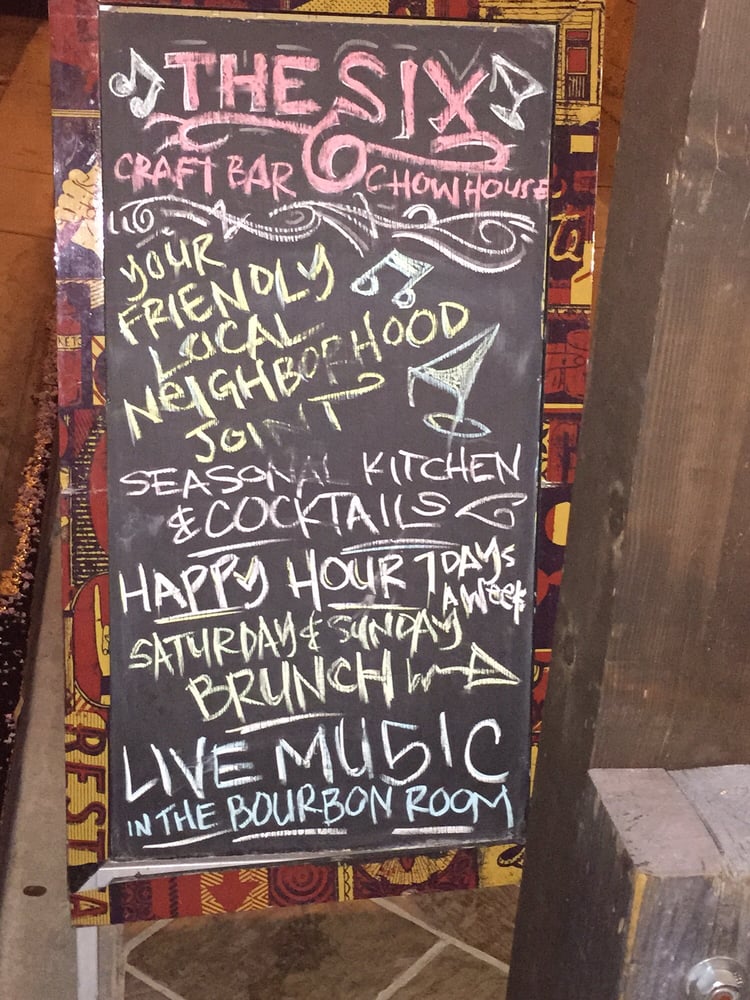 THE SIX
CRAFT BAR CHOWHOUSE
YOUR
FRIENDLY
LOCAL
NEIGHBORHOOD
JOINT
SEASONAL KITCHEN
& COCKTAILS
HAPPY HOUR 7 DAYS
A WEEK
SATURDAY & SUNDAY
BRUNCH
LIVE MUSIC
IN THE BOURBON ROOM
REST